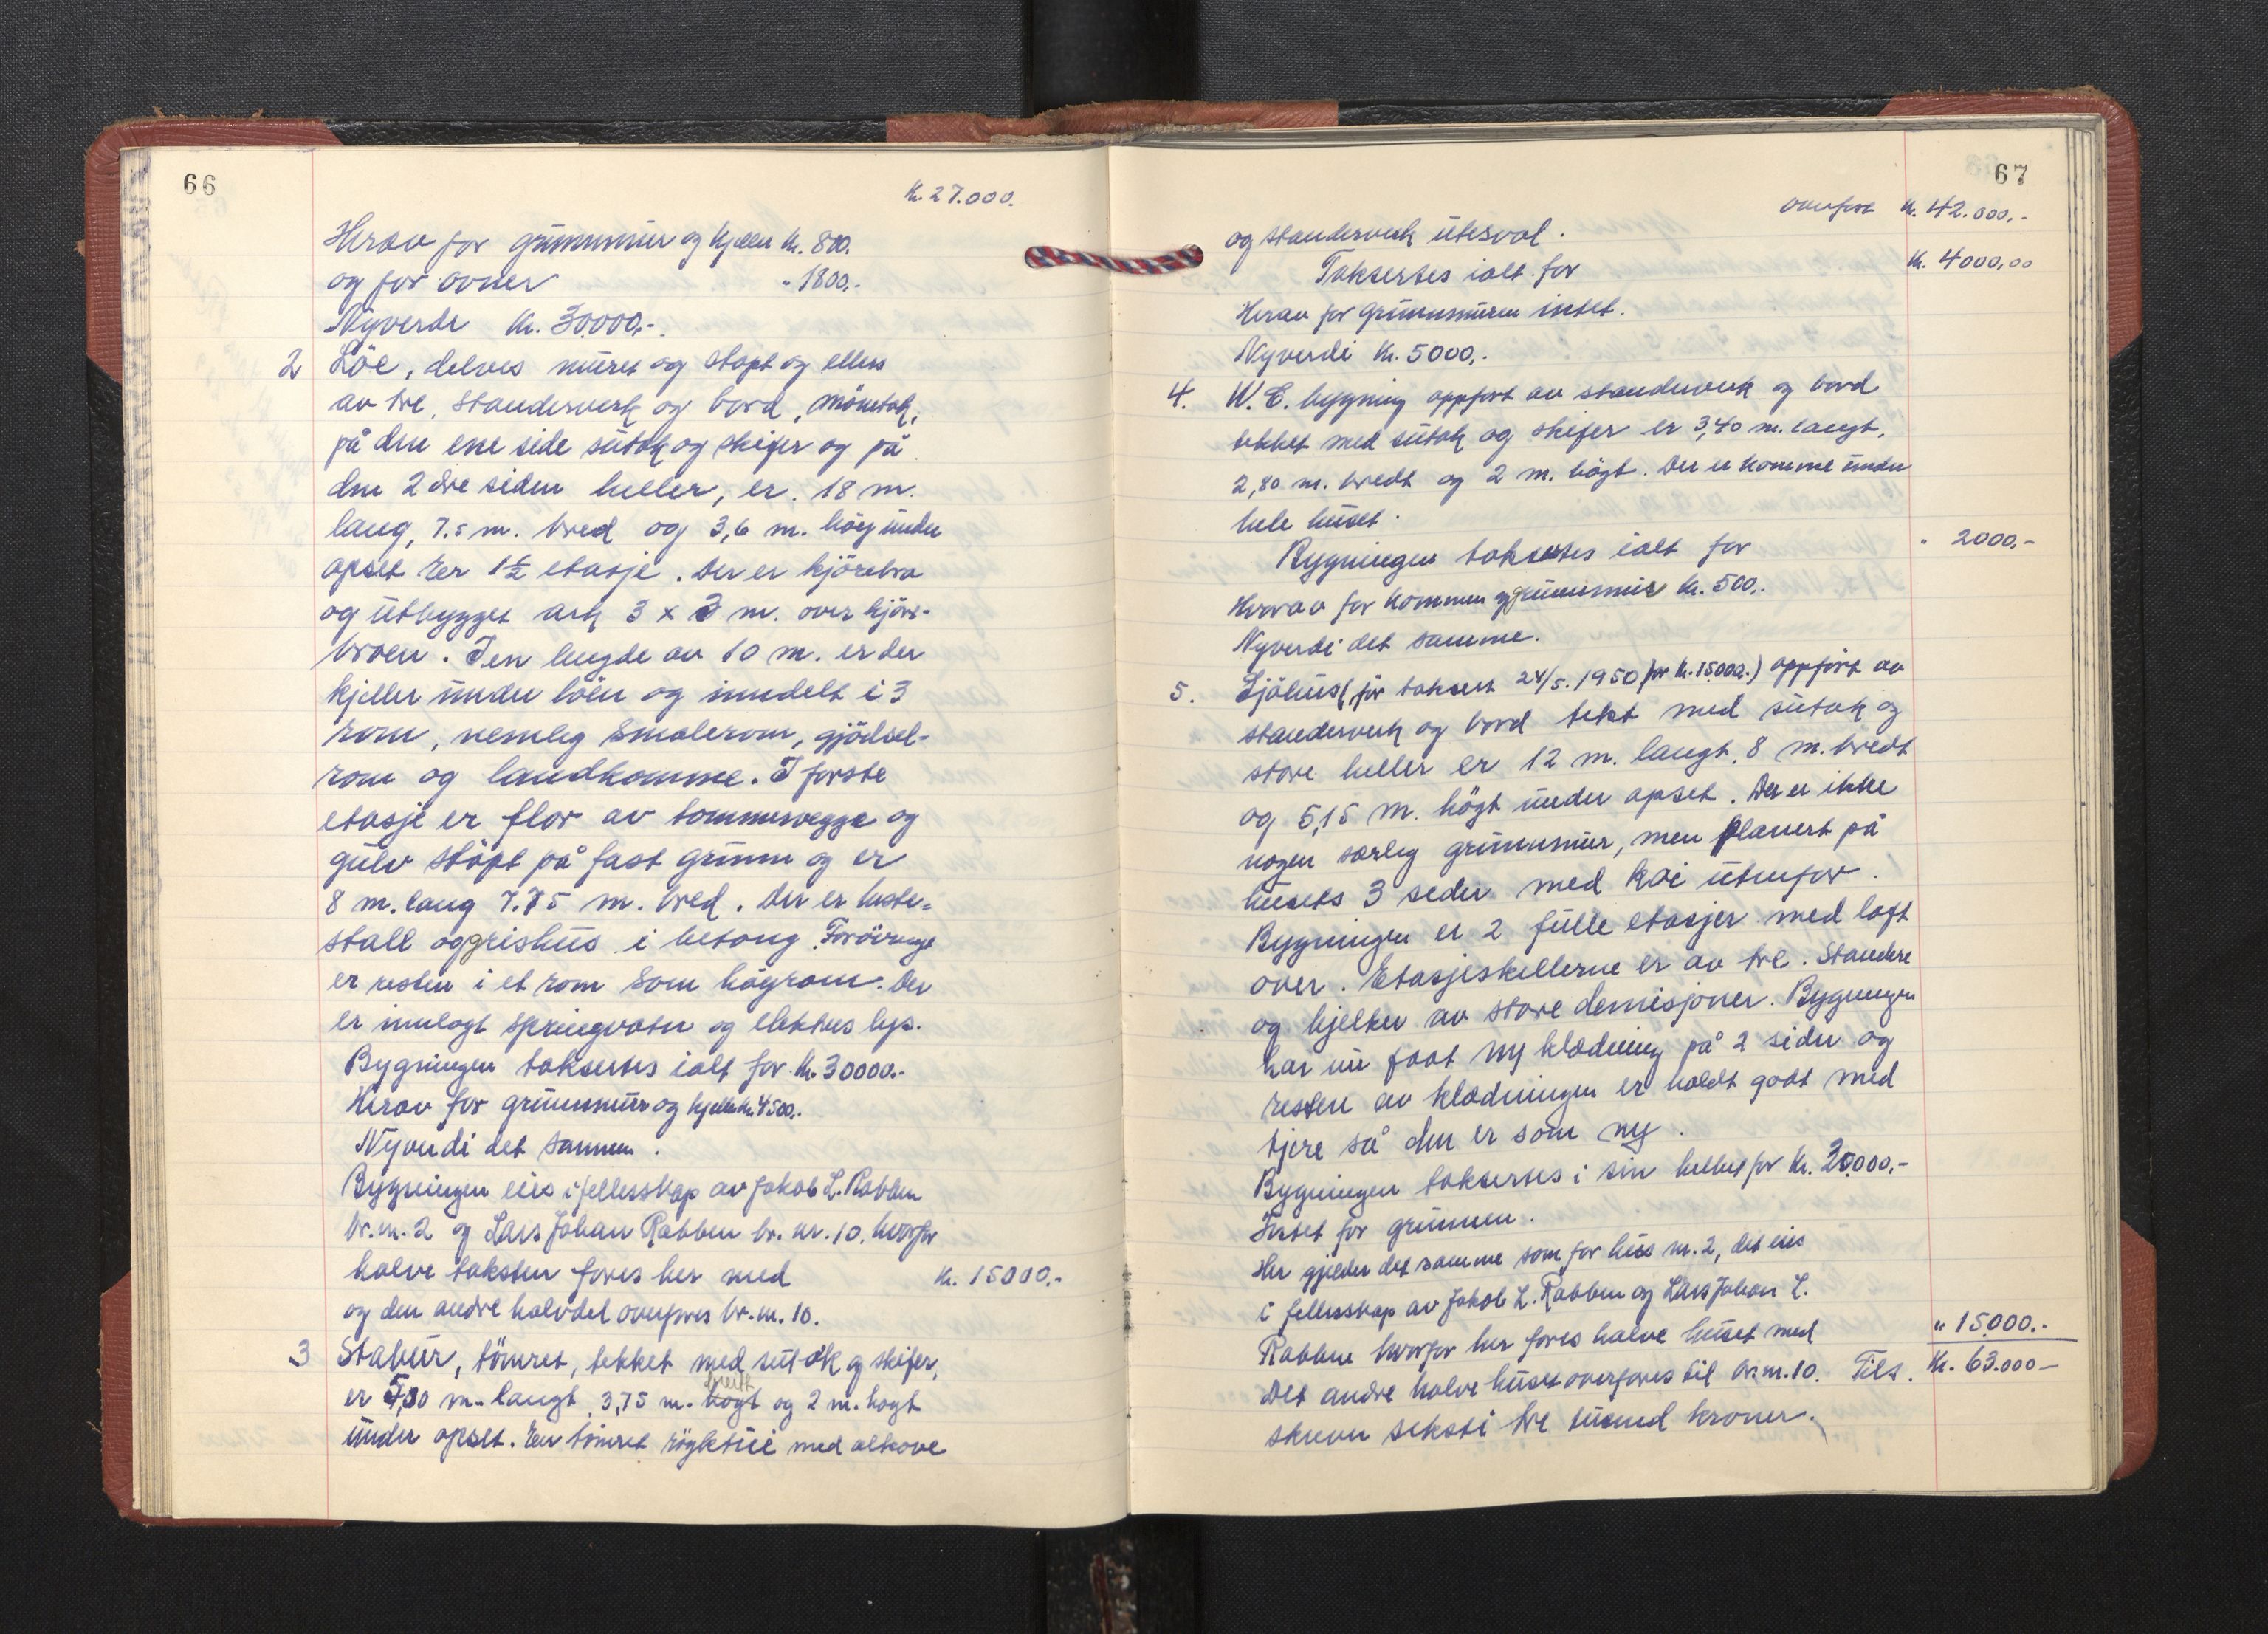 66
Kr. 27.000.
Herav for grunnmur og kjeller Kr. 800.
og for ovner " 1800,-
Nyverdi Kr. 30000,-
2 Löe, delves muret og stöpt og ellers
av tre, standerverk og bord, mönetak,
på den ene side sutak og skifer og på
den 2dre siden heller, er 18 m.
lang, 7.5 m. bred og 3,6 m. höy under
opset Eer 1½ etasje. Der er kjörebro
og utbygget ark 3 x 3 m. over kjöre-
broen. I en lengde av 10 m. er der
kjeller under löen og inndelt i 3
rom, nemlig smalerom, gjödsel-
rom og landkomme. I forste
etasje er flor av tommervegge og
gulv stöpt på fast grunn og er
8 m. lang 7.75 m. bred. Der er heste-
stall og grishus i betong. Forövrige
er resten i et rom som höyrom. Der
er innlagt springvatn og elektris lys.
Bygningen takseres ialt for Kr. 30000.-
Herav for grunnmur og kjeller Kr. 4500,.
Nyverdi det samme.
Bygningen eies i fellesskap av Jakob L. Rabben
br. nr. 2 og Lars Johan Rabben br. nr. 10, hvorfor
halve taksten fores her med Kr. 15000.-
og den andre halvdel overfores br. nr. 10.
3 Stabur, tömret, tekket med sutak og skifer,
er 5,30 m. langt, 3,75 m. breitt högt og 2 m. hogt
under opset. Een tömret röykstue med alkove
67
overfort Kr. 42.000,-
og standerverk utesval.
Takseres ialt for Kr. 4000,00
Herav for grunnmuren intet.
Nyverdi Kr. 5000,.
4. W. C. bygning oppfort av standerverk og bord
tekket med sutak og skifer er 3,40 m. langt,
2,80 m. bredt og 2 m. högt. Der er komme under
hele huset.
Bygningen takseres ialt for " 2000,-
Herav for kommen og grunnmur Kr. 500,.
Nyverdi det samme.
5. Sjöhus (för taksert 24/5. 1950 for Kr. 15000,-) oppfört av
standerverk og bord tekt med sutak og
store heller er 12 m. langt, 8 m. bredt
og 5,15 m. högt under opset. Der er ikke
nogen særlig grunnmur, men planert på
husets 3 sider med kai utenfor.
Bygningen er 2 fulle etasjer med loft
over. Etasjeskillerne er av tre. Standere
og bjelker av store demisjoner. Bygningen
har nu faat ny klædning på 2 sider og
resten av klædningen er holdt godt med
tjere så den er som ny.
Bygningen takseres i sin helhet for Kr. 30000,-
Intet for grunnen.
Her gjelder det samme som for hus nr. 2, det eies
i fellesskap av Jakob L. Rabben og Lars Johan L.
Rabben hvorfor her fores halve huset med " 15000.-
Det andre halve huset overfores til br. nr. 10. Tils. Kr. 63.000-
skriver seksti tre tusend kroner.